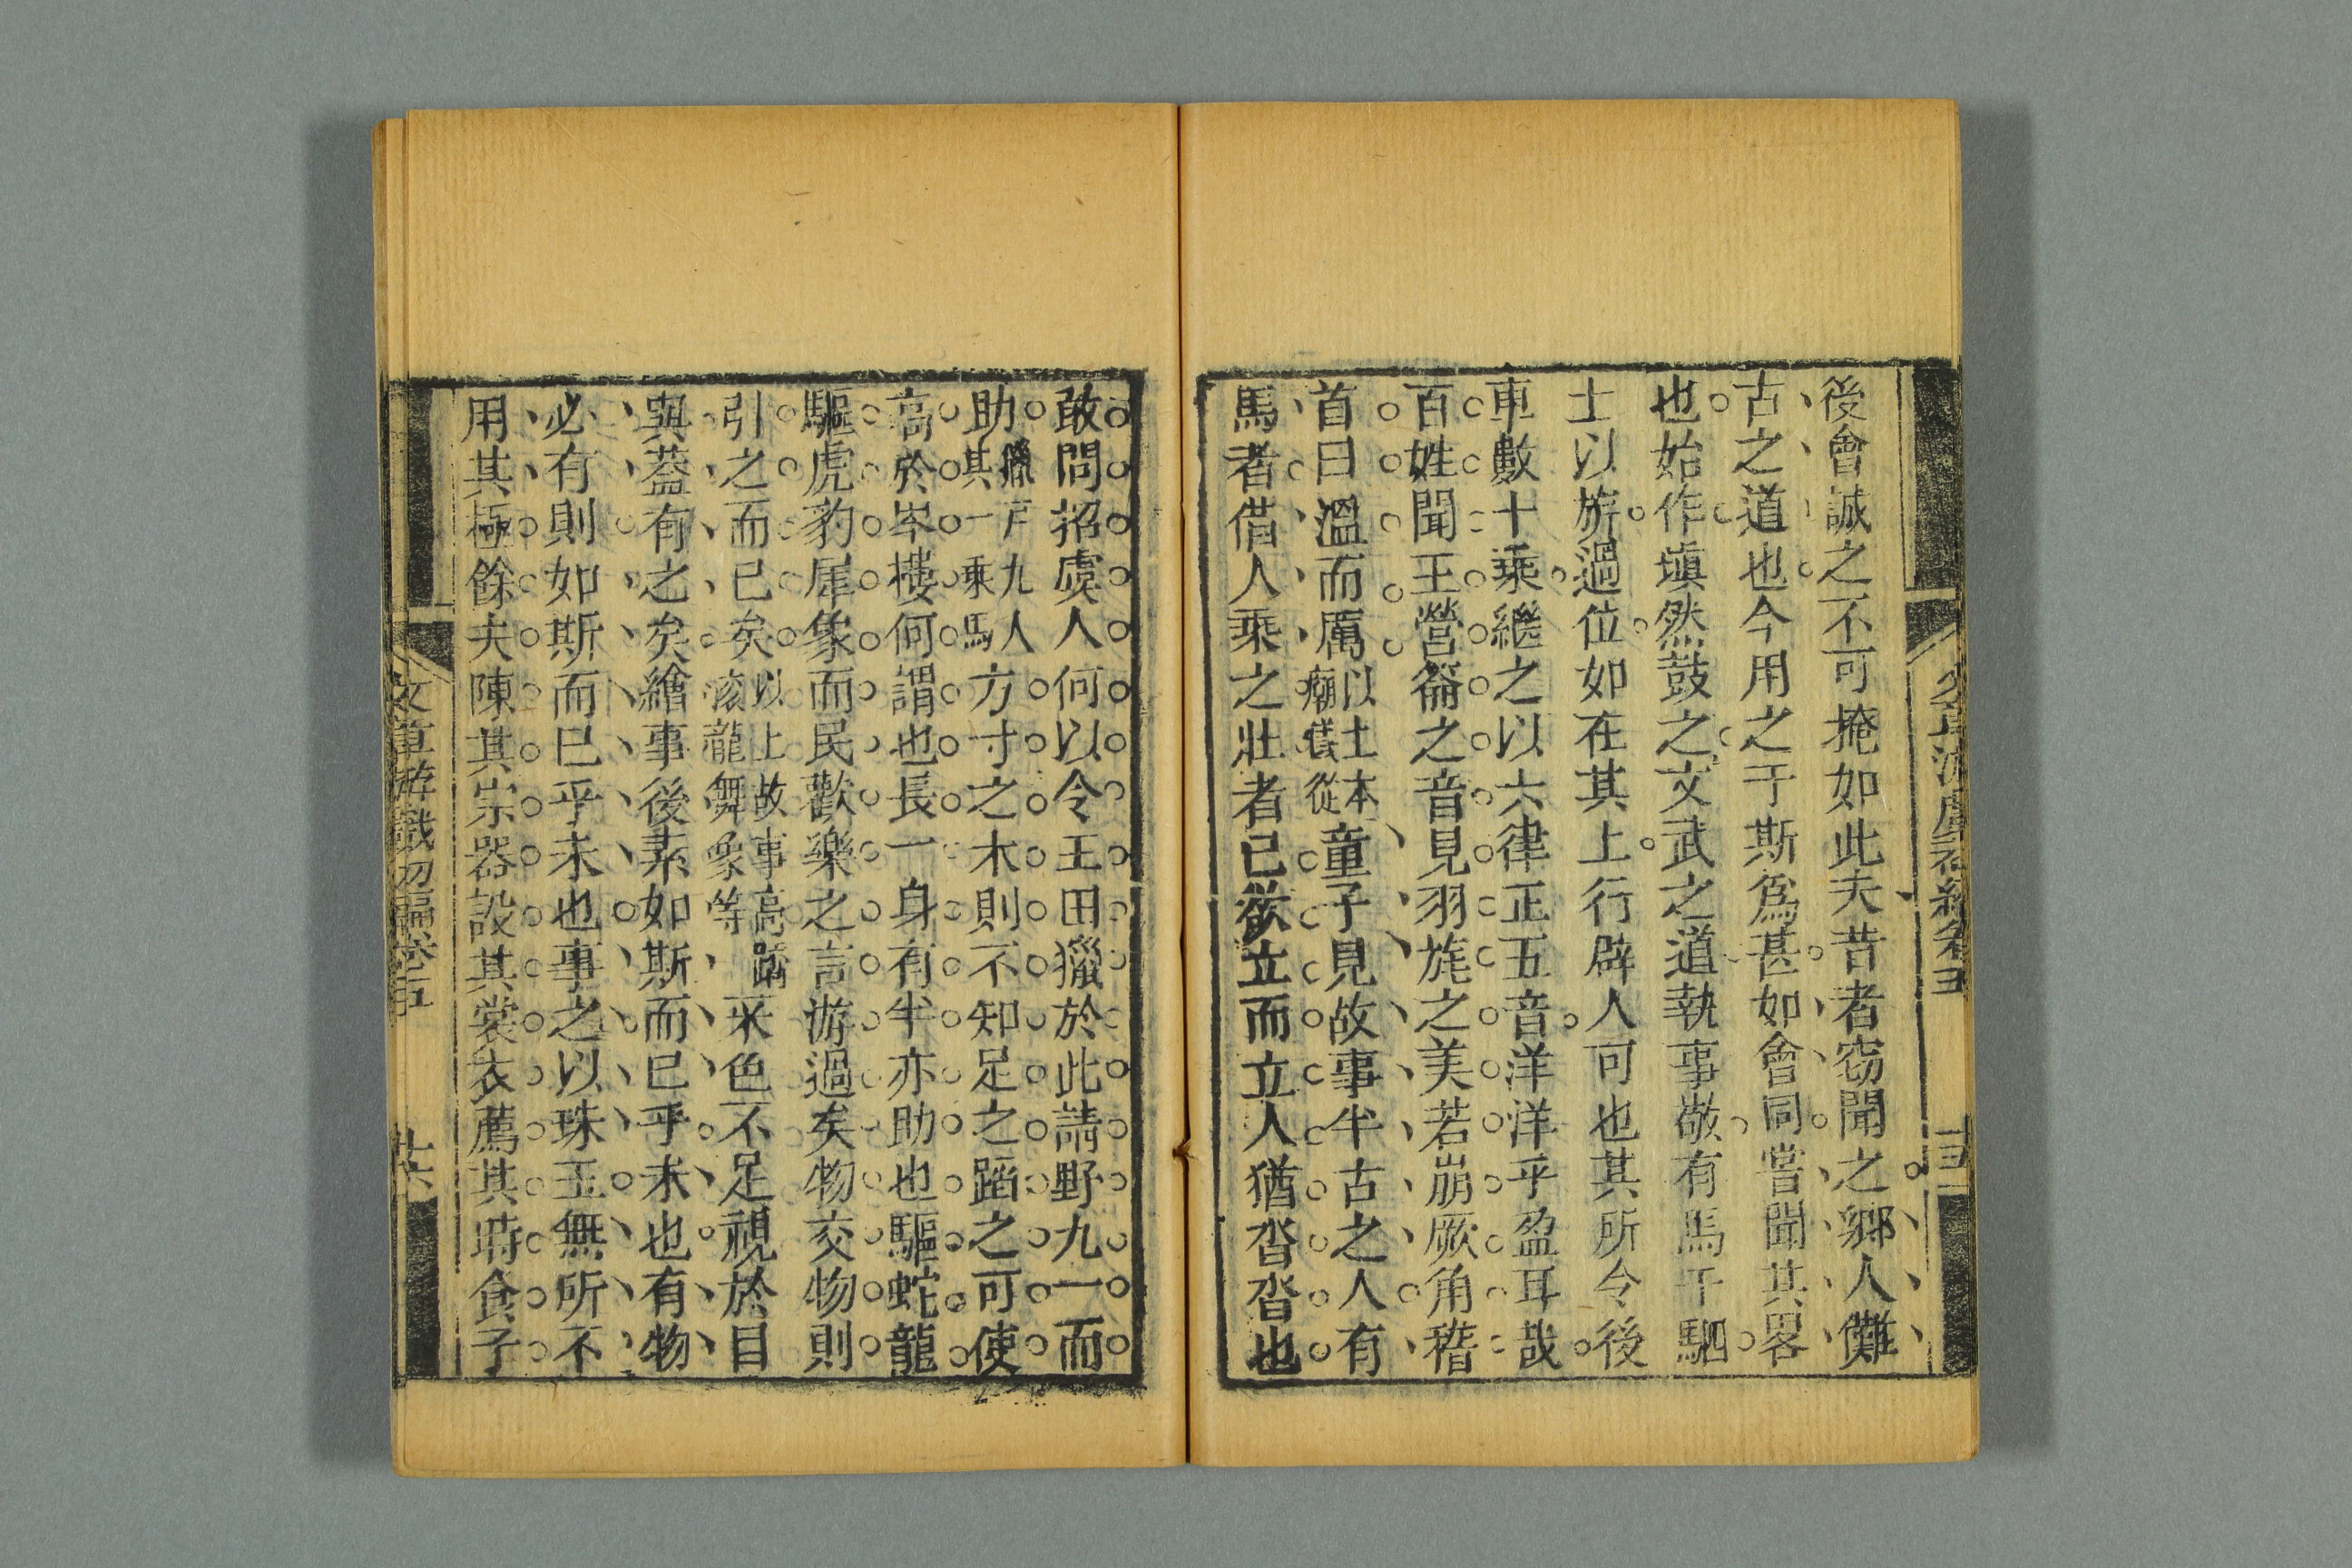 後會誠之不可掩如此夫昔者窃聞之鄉人儺
古之道也今用之于斯爲甚如會同嘗聞其畧
也始作塡然鼓之文武之道執事敬有馬千駟
士以旂過位如在其上行辟人可也其所令後
車數十乘繼之以六律正五音洋洋乎盈耳哉
百姓聞王營籥之音見羽旄之美若崩厥角稽
首曰溫而厲以土本廟儀從童子見故事半古之人有
馬者借人乘之壯者已欲立而立人猶沓沓也
敢問招虞人何以令王田獵於此請野九一而
助獵戸九人其一乘馬方寸之木則不知足之蹈之可使
高於岑樓何謂也長一身有半亦助也驅蛇龍
驅虎豹犀象而民歡樂之言游過矣物交物則
引之而已矣以上故事高蹻滚龍舞象等采色不足視於目
與蓋有之矣繪事後素如斯而已乎未也有物
必有則如斯而已乎未也事之以珠玉無所不
用其極餘夫陳其宗器設其裳衣薦其時食子
文章游戲初編卷五
十六